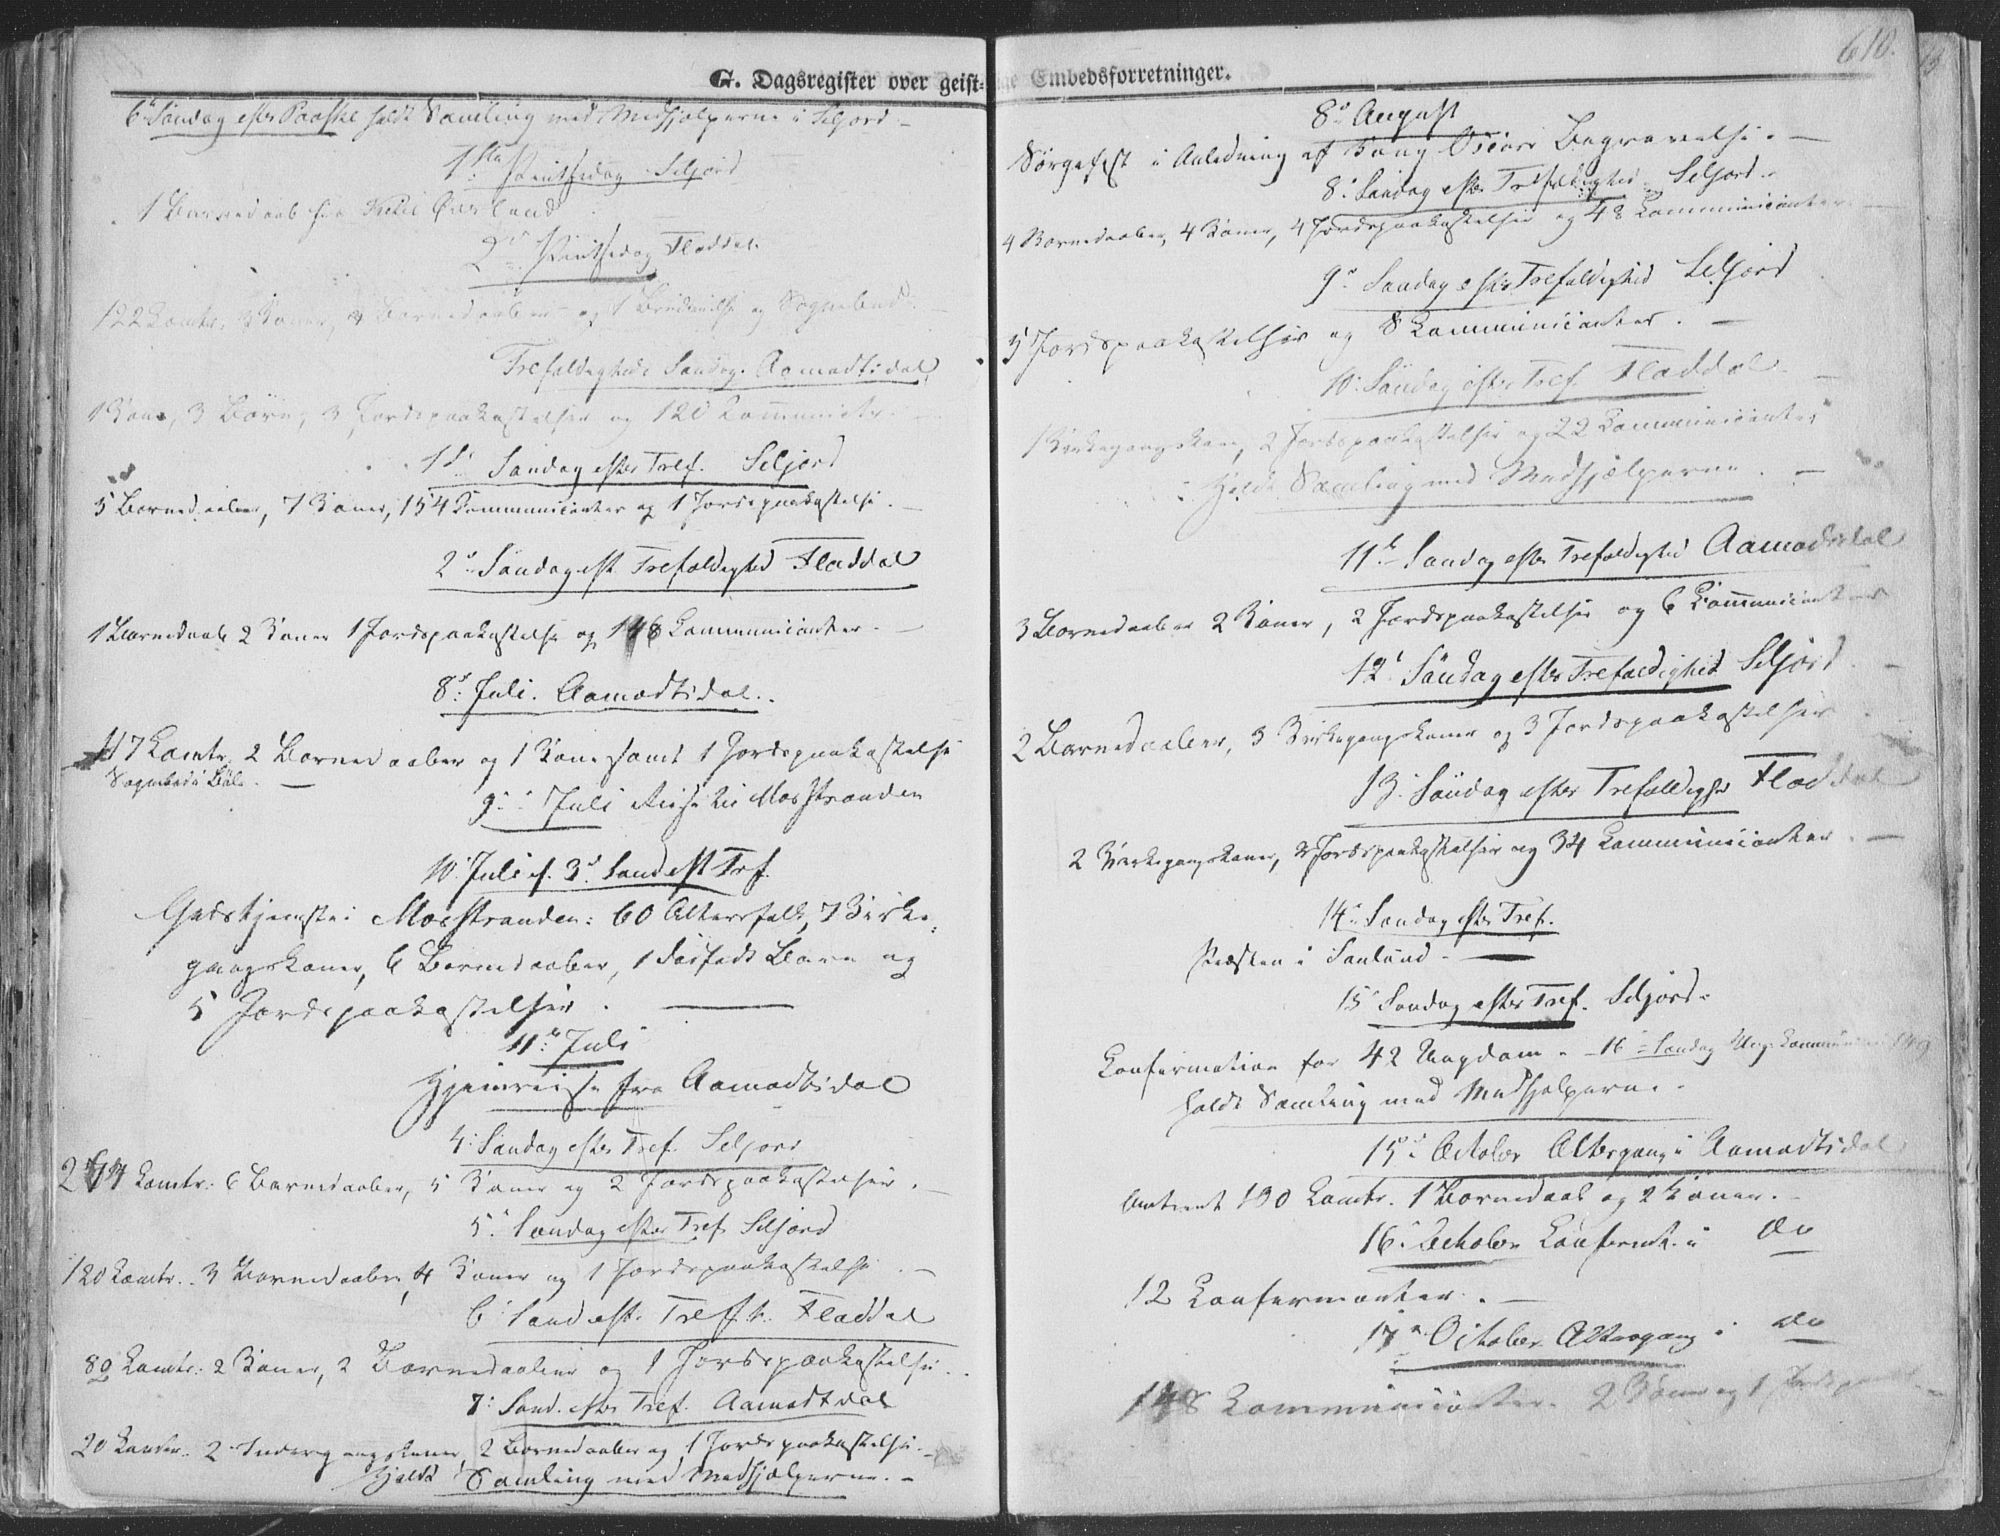 G. Dagsregister over geist-
6te Søndag efter Paaske holdt Samling med Medhjælperne i Seljord –
1ste Pintsedag Seljord
1 Barnedaab fra Kiles Øverland
2den Pintsedag Fladdal.
122 Comtr. Koner, Barnedaaber og 1 Brudevielse og Sognebud.
Trefoldigheds Søndag. Aamodtsdal
1 Kone, 3 Børn, 3 Jordspaakastelser og 120 Communictr.
1ste Søndag efter Tref. Seljord
5 Barnedaaber, 7 Koner, 154 Communicanter og 1 Jordspaakastelse. –
2den Søndag eft Trefoldighed Fladdal
1 Barnedaab 2 Koner 1 Jordspaakastelse og 148 Communicanter. –
8de Juli. Aamodtsdal.
117 Comtr. 2 Barnedaaber og 1 Kone samt 1 Jordspaakastelse
Sognebud i Bøle. –
9de Juli Reise til Mosstranden
10. Juli e. 3d Sønd eft Tref.
Gudstjeneste i Mosstranden: 60 Altersfolk, 7 Kirke-
gangskoner, 6 Barnedaaber, 1 Barn og
5 Jordspaakastelser. –
11te Juli
Hjemreise fra Aamodtsdal
4. Søndag efter Tref. Seljord
274 Comtr. 6 Barnedaaber, 5 Koner og 2 Jordspaakastelser. –
5. Søndag efter Tref Seljord
120 Comtr. 3 Barnedaaber, 4 Koner og 1 Jordspaakastelse. –
6. Sønd eft. Treff. Fladdal
80 Comtr. 2 Koner, 2 Barnedaaber og 1 Jordspaakastelse.
7. Sønd. efter Tref. Aamodtdal
20 Comtr. 2 Indgangskoner, 2 Barnedaaber og 1 Jordspaakastelse. –
Holdt Samling med Medhjælperne. –
610.
ige Embedsforretninger.
8de August
Sørgefest i Anledning af Kong Oscars Begravelse. –
8. Søndag efter Trefoldighed Seljord –
4 Barnedaaber, 4 Koner, 4 Jordspaakastelser og 48 Communicanter.
9de Søndag efter Trefoldighed Seljord
3 Jordspaakastelser og 8 Communicanter. –
10. Søndag efter Tref Fladdal –
1 Kirkegangskone, 2 Jordspaakastelser og 22 Communicanter
Holdt Samling med Medhjælperne. –
11te Søndag efter Trefoldighed Aamodtsdal
3 Barnedaaber 2 Koner, 2 Jordspaakastelser og 6 Communicanter
12te Søndag efter Trefoldighed Seljord. –
2 Barnedaaber, 3 Kirkegangskoner og 3 Jordspaakastelser.
13. Søndag efter Trefoldighed Fladdal
2 Kirkegangskoner, 2 Jordspaakastelser og 34 Communicanter. –
14. Søndag efter Tref.
Præsten i Sauland. –
15 Søndag efter Tref. Seljord.
Confirmation for 42 Ungdom. – 16 Søndag Ung. Communion 149
holdt Samling med Medhjælperne.
15de October Altergang i Aamodtsdal
Omtrent 130 Comtr. 1 Barnedaab og 2 Koner. –
16. October Confirmt. i do
12 Confirmanter. –
17de October Altergang i do
148 Communicanter. 2 Koner og 1 Jordspaak. –